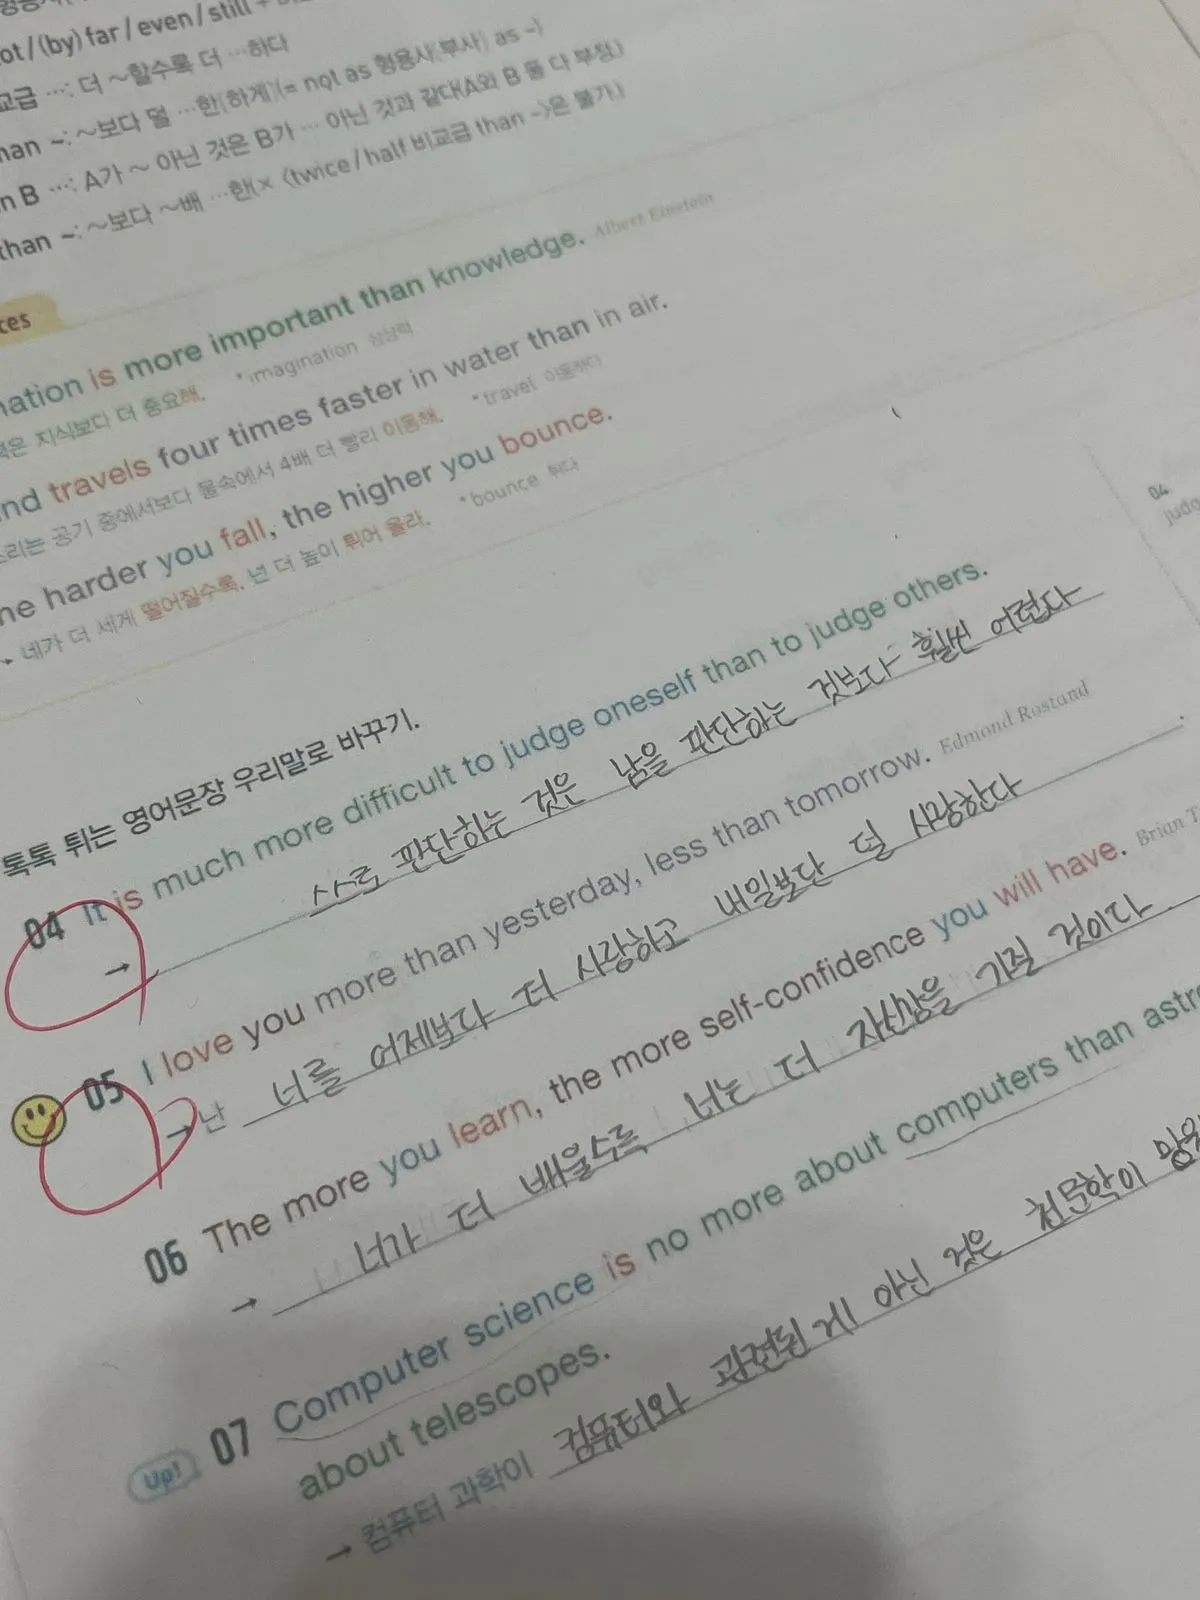 ot / (by) far / even / still +
교급 …: 더 ~할수록 더 …하다
han ~: ~보다 덜 …한[하게](= not as 형용사[부사] as ~)
n B …: A가 ~ 아닌 것은 B가 … 아닌 것과 같다(A와 B 둘 다 부정)
than ~: ~보다 ~배 …한(× 〈twice / half 비교급 than ~〉은 불가)
ces
nation is more important than knowledge. Albert Einstein
은 지식보다 더 중요해. * imagination 상상력
nd travels four times faster in water than in air.
리는 공기 중에서보다 물속에서 4배 더 빨리 이동해. * travel 이동하다
he harder you fall, the higher you bounce.
네가 더 세게 떨어질수록, 넌 더 높이 튀어 올라. * bounce 튀다
04
judg
톡톡 튀는 영어문장 우리말로 바꾸기.
04 It is much more difficult to judge oneself than to judge others.
→ 스로 판단하는 것은 남을 판단하는 것보다 훨씬 어렵다
05 I love you more than yesterday, less than tomorrow. Edmond Rostand
→ 난 너를 어제보다 더 사랑하고 내일보단 덜 사랑한다.
06 The more you learn, the more self-confidence you will have. Brian T
→ 너가 더 배울수록 너는 더 자신감을 가질 것이다
Up! 07 Computer science is no more about computers than astr
about telescopes.
→ 컴퓨터 과학이 컴퓨터와 관련된 게 아닌 것은 천문학이 망원